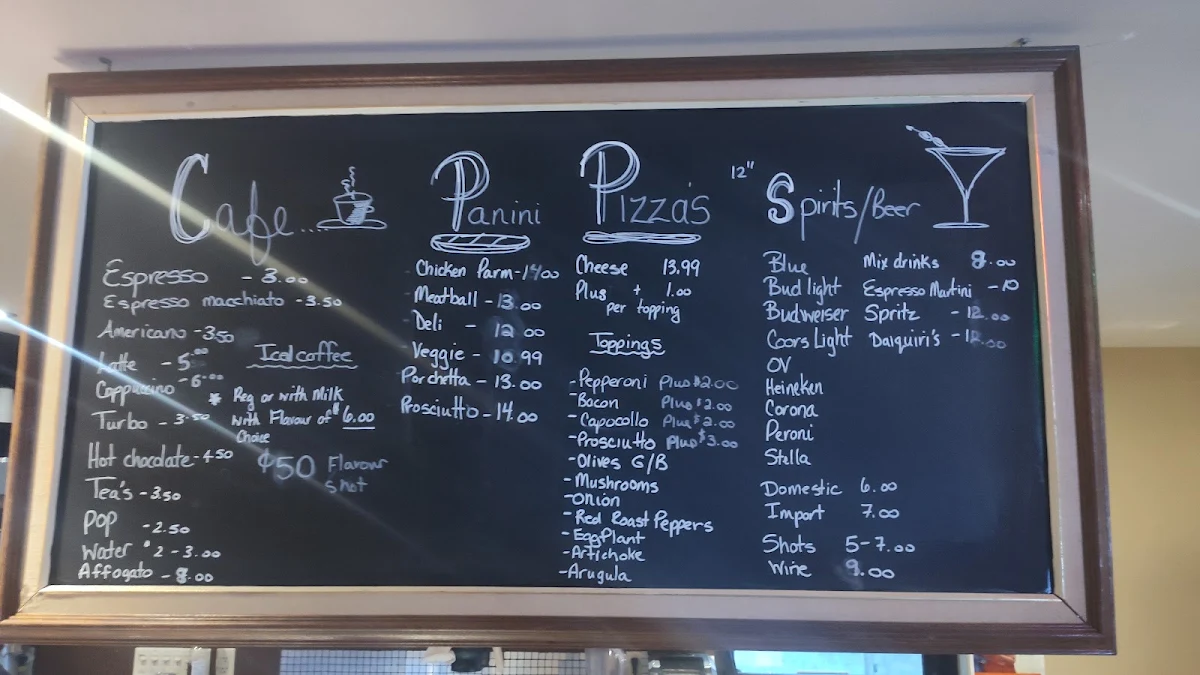 Cafe...
Espresso - 3.00
Espresso macchiato - 3.50
Americano - 3.50
Latte - 5.00
Cappuccino - 6.00
Turbo - 3.50
Hot chocolate - 4.50
Tea's - 3.50
Pop - 2.50
Water $2 - 3.00
Affogato - 8.00
Iced coffee
* Reg or with Milk
with Flavour of $6.00
Choice
¢50 Flavour
shot
Panini
Chicken Parm - 14.00
Meatball - 13.00
Deli - 12.00
Veggie - 10.99
Porchetta - 13.00
Prosciutto - 14.00
Pizza's 12"
Cheese 13.99
Plus + 1.00
per topping
Toppings
- Pepperoni Plus $2.00
- Bacon Plus $2.00
- Capocollo Plus $2.00
- Prosciutto Plus $3.00
- Olives G/B
- Mushrooms
- Onion
- Red Roast Peppers
- EggPlant
- Artichoke
- Arugula
Spirits/Beer
Blue
Bud light
Budweiser
Coors Light
OV
Heineken
Corona
Peroni
Stella
Domestic 6.00
Import 7.00
Shots 5-7.00
Wine 9.00
Mix drinks 8.00
Espresso Martini - 10
Spritz - 12.00
Daiquiri's - 12.00